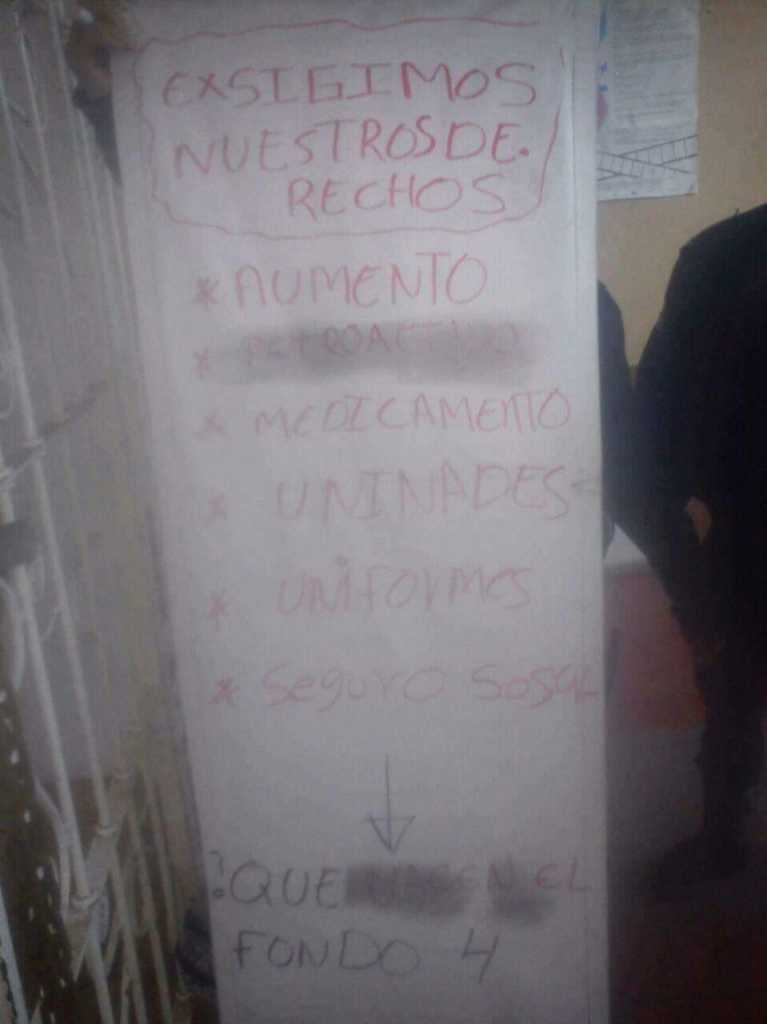 EXSIGIMOS
NUESTROS DE.
RECHOS
* AUMENTO
*
* MEDICAMENTO
* UNINADES
* UNIFORMES
* SEGURO SOSAL
?QUE EL
FONDO 4